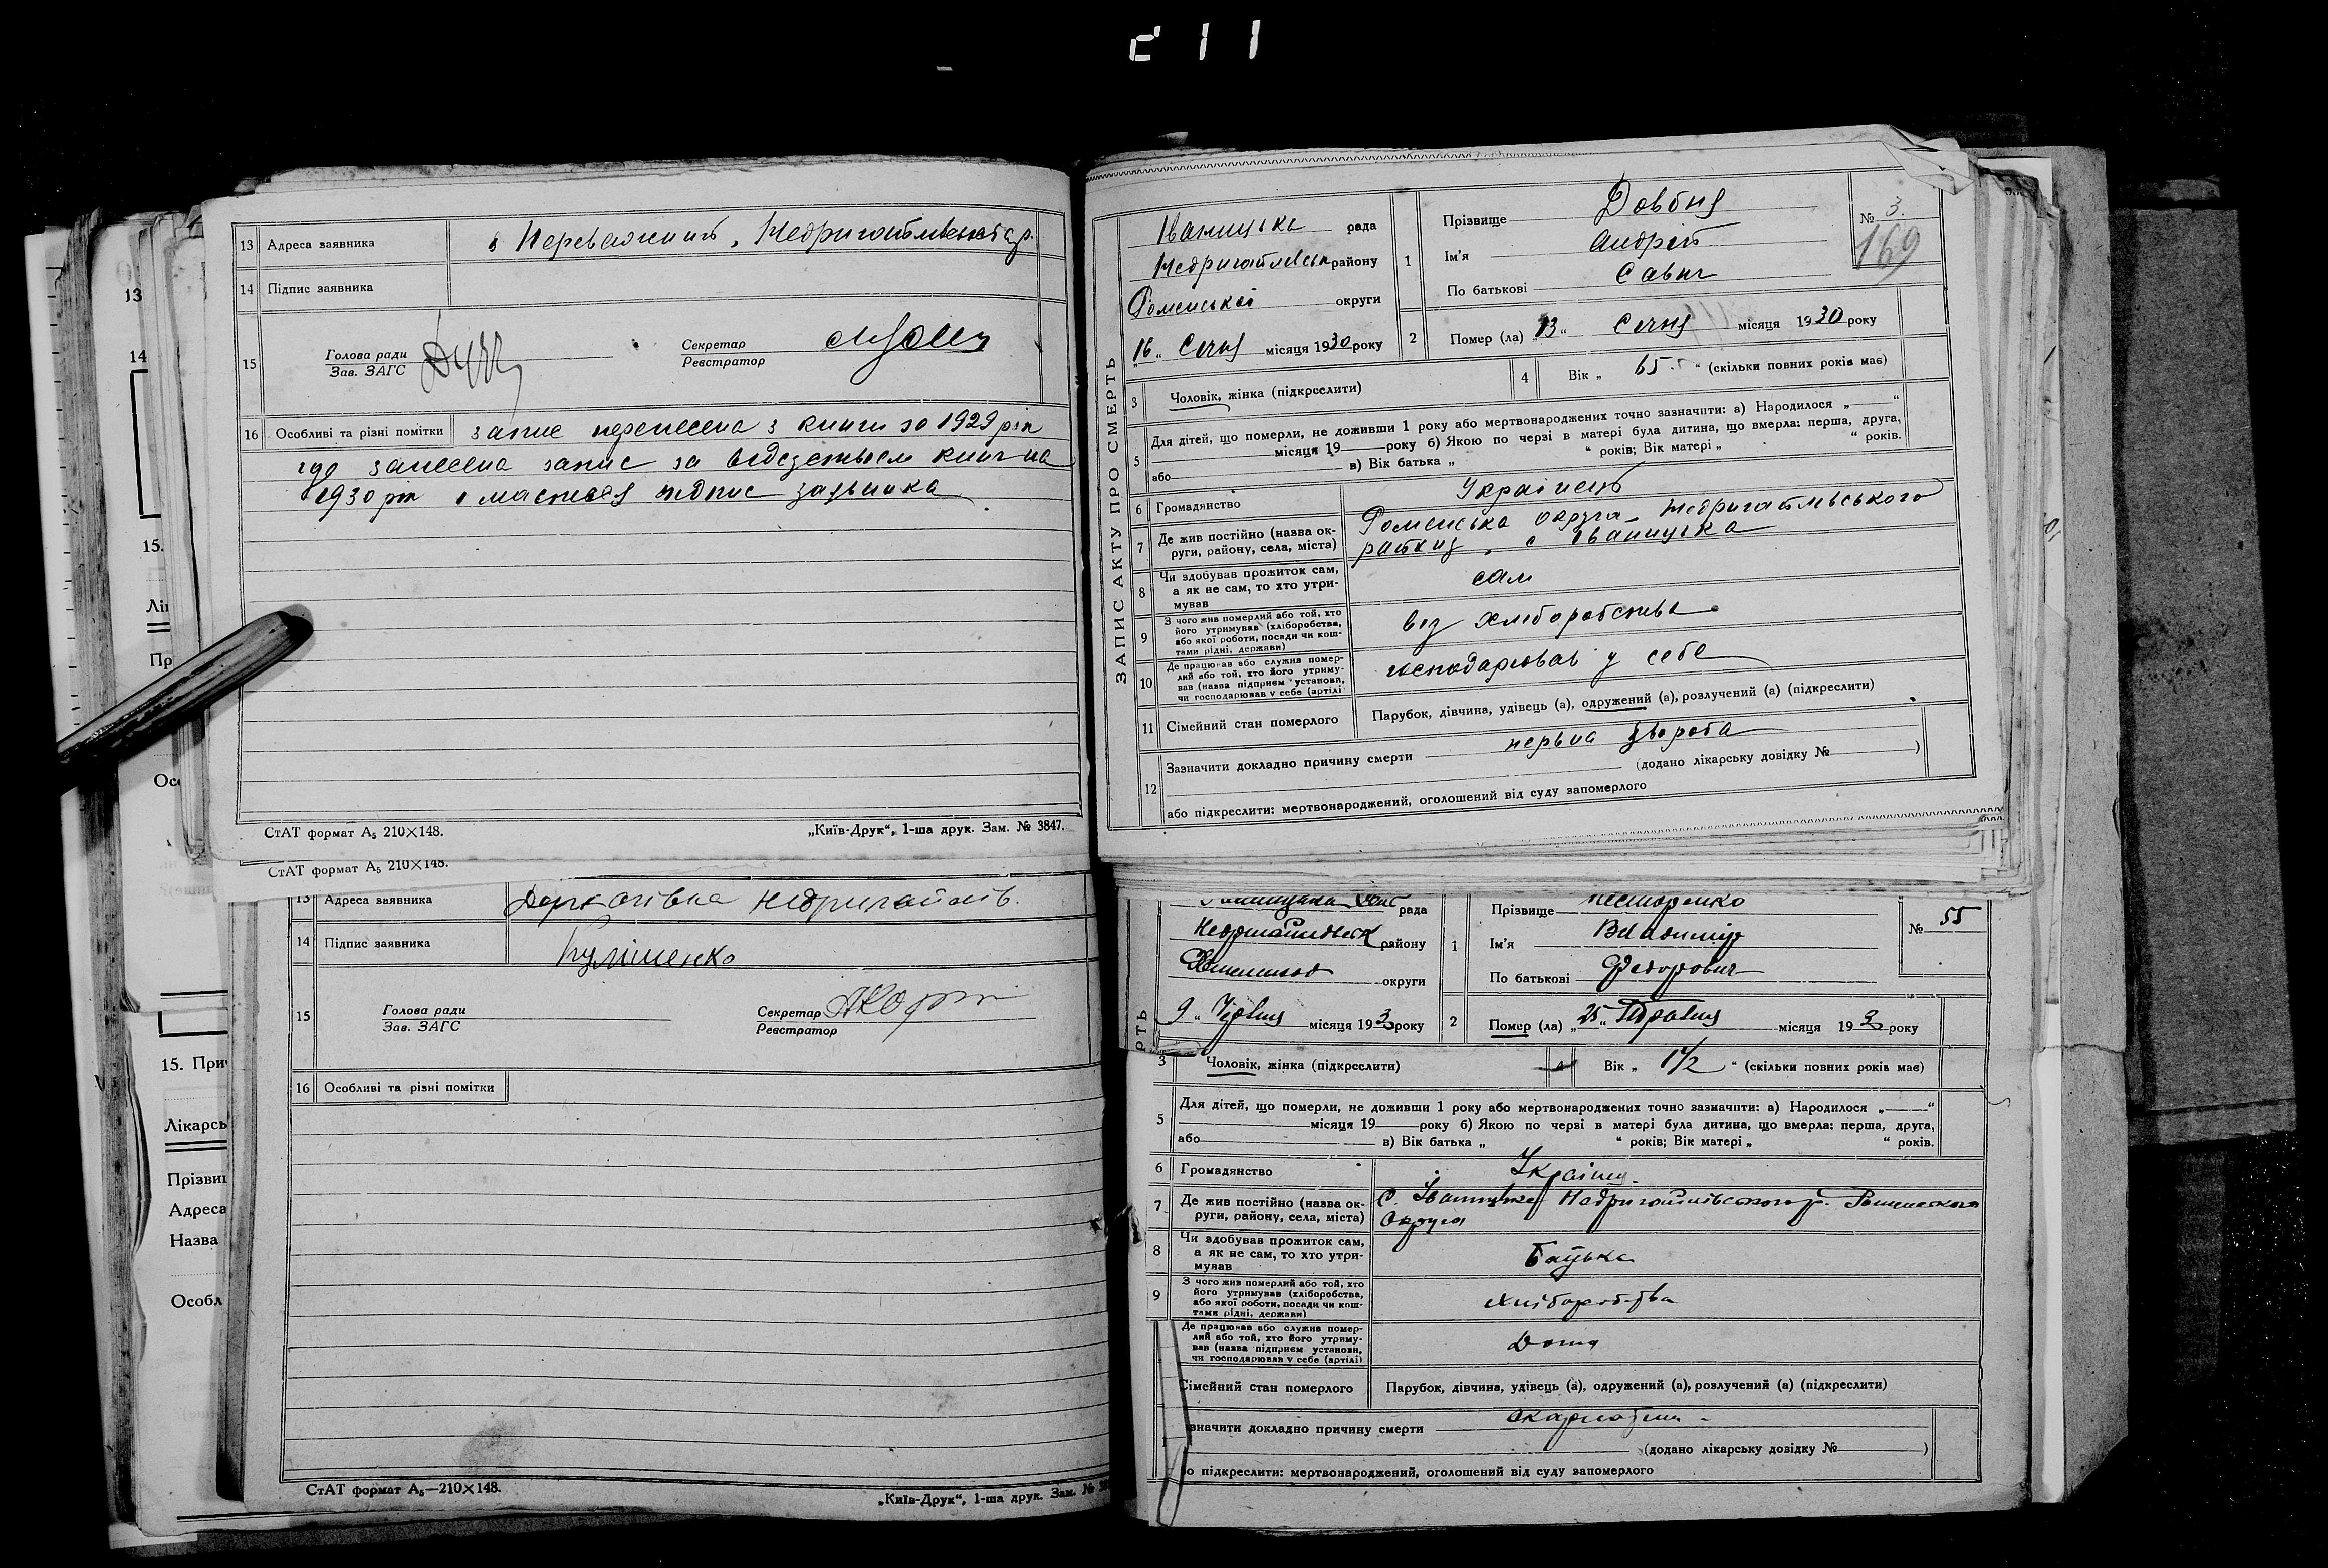 211
13 Адреса заявника
14 Підпис заявника
15 Голова ради Секретар
Зав. ЗАГС Реєстратор
16 Особливі та різні помітки запис перенесена з книги за 1929 рік
занесена запис за
1930 рік підпис заявника
СтАТ формат А5 210×148. „Київ-Друк“, 1-ша друк. Зам. № 3847.
ЗАПИС АКТУ ПРО СМЕРТЬ
Іваницька рада
району
Роменської округи
16 „ Січня місяця 1930 року
1 Прізвище Довбня
Ім'я Андрій
По батькові Савич
№ 3.
169
2 Помер (ла) 13 „ Січня місяця 1930 року
3 Чоловік, жінка (підкреслити)
4 Вік „ 65 “ (скільки повних років має)
5 Для дітей, що померли, не доживши 1 року або мертвонароджених точно зазначити: а) Народилося „ “
місяця 19 року б) Якою по черзі в матері була дитина, що вмерла: перша, друга,
або в) Вік батька „ “ років; Вік матері „ “ років.
6 Громадянство Українець
7 Де жив постійно (назва округи, району, села, міста) Роменська округа Недригайлівського
району, с Іваницька
8 Чи здобував прожиток сам,
а як не сам, то хто утри-
мував сам
9 З чого жив померлий або той, хто
його утримував (хліборобства,
або якої роботи, посади чи кош-
тами рідні, держави) від хліборобства
10 Де працював або служив помер-
лий або той, хто його утриму-
вав (назва підприєм установи,
чи господарював у себе (артілі) господарював у себе
11 Сімейний стан померлого Парубок, дівчина, удівець (а), одружений (а), розлучений (а) (підкреслити)
12 Зазначити докладно причину смерти нервна хвороба
(додано лікарську довідку № )
або підкреслити: мертвонароджений, оголошений від суду запомерлого
СтАТ формат А5 210×148.
13 Адреса заявника Деркачівка Недригайлів.
14 Підпис заявника Кулішенко
15 Голова ради Секретар
Зав. ЗАГС Реєстратор
16 Особливі та різні помітки
СтАТ формат А5—210×148. „Київ-Друк“, 1-ша друк. Зам. №
рада
району
округи
9 „ Червня місяця 193 року
1 Прізвище Нестеренко
Ім'я Владимір
По батькові Федорович
№ 55
2 Помер (ла) „ 25 „ Травня місяця 193 року
3 Чоловік, жінка (підкреслити)
4 Вік „ 1 1/2 “ (скільки повних років має)
5 Для дітей, що померли, не доживши 1 року або мертвонароджених точно зазначити: а) Народилося „ “
місяця 19 року б) Якою по черзі в матері була дитина, що вмерла: перша, друга,
або в) Вік батька „ “ років; Вік матері „ “ років.
6 Громадянство
7 Де жив постійно (назва округи, району, села, міста) С. Недригайлівського р.
Округа
8 Чи здобував прожиток сам,
а як не сам, то хто утри-
мував Батько
9 З чого жив померлий або той, хто
його утримував (хліборобства,
або якої роботи, посади чи кош-
тами рідні, держави) Хліборобства
Де працював або служив помер-
лий або той, хто його утриму-
вав (назва підприєм установи,
чи господарював у себе (артілі) Дома
Сімейний стан померлого Парубок, дівчина, удівець (а), одружений (а), розлучений (а) (підкреслити)
значити докладно причину смерти
(додано лікарську довідку № )
о підкреслити: мертвонароджений, оголошений від суду запомерлого
13
14
15.
15. При
Лікарсь
Прізви
Адреса
Назва
Особл